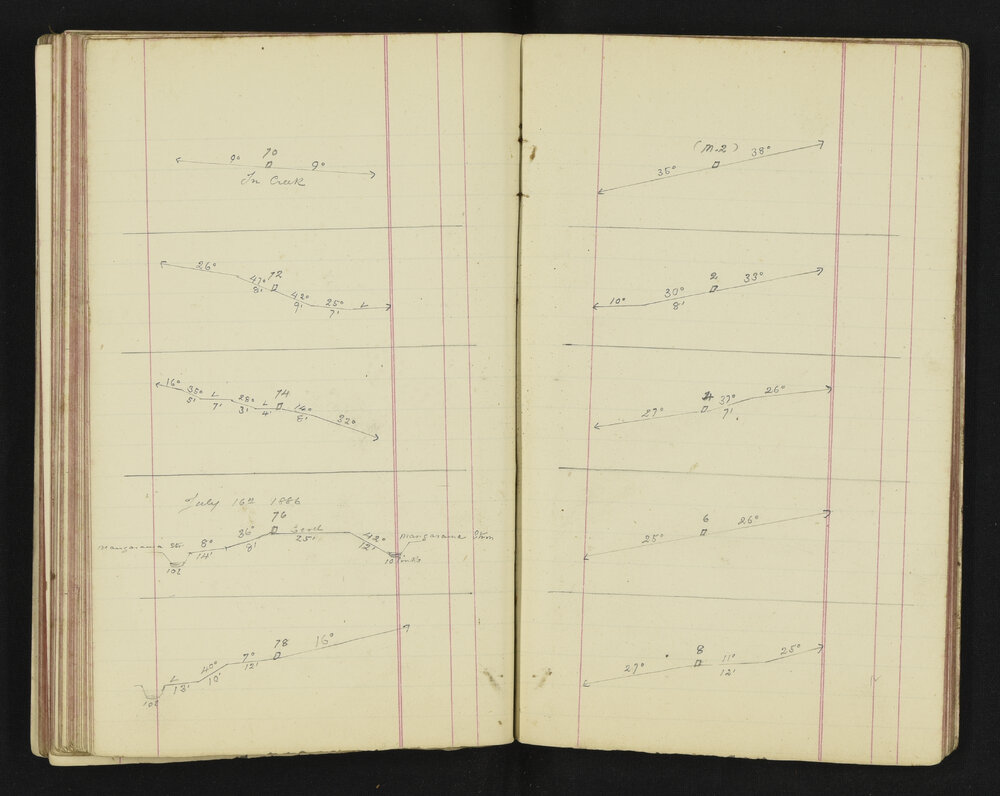 70
9° 9°
In Creek
72
26° 47° 42° 25° L
8' 9' 7'
74
16° 35° L 28° L 14° 32°
5' 7' 3' 4' 8'
July 16th 1886
76
8° 36° Level 42°
14' 8' 25' 12'
10l 10 links
78
L 40° 7° 16°
13' 10' 12'
10l
(M.2)
35° 38°
2
10° 30° 33°
8'
4
27° 37° 26°
7'
6
25° 26°
8
27° 11° 25°
12'